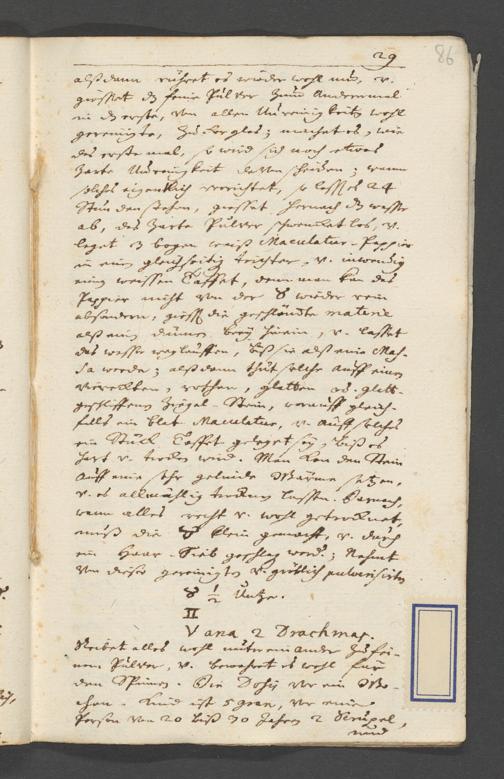 29
86
alß dann rühret es wieder wohl um, v.
giesset dz feine Pulver zum Andernmal
in dz erste, von allen Unreinigkeiten wohl
gereinigte, Zucker glas; machet es, wie
das erste mal, so wird sich noch etwas
Zarte Unreinigkeit davon scheiden; wann
solches eigentlich verrichtet, so lasset es 24
Stunden stehen, giesset hernach dz wasser
ab, das Zarte Pulver schwencket los, v.
leget 3 bogen weiß Maculatur-Pappier
in ein gleichseitig trichter, v. inwendig
einen weissen Taffet, denn man kan das
Pappier nicht von der wieder rein
absondern, giesst die geschlämte materie
alß ein dünnen brey hinein, v. lasset
das wasser weglauffen, biß sie alß eine Maß-
sa werde; alßdann thut solche auff einen
viereckten, rothen, glatten od. glatt-
geschliffenen Ziegel-Stein, worauff gleich-
falls ein blat Maculatur, v. auff solches
ein Stück Taffet geleget sey, biß es
hart v. trocken wird. Man kan den Stein
auff eine sehr gelinde Wärme setzen,
v. es allmählig trocknen lassen. Darnach,
wann alles recht v. wohl getrocknet,
muß die klein gemacht, v. durch
ein Haar-Sieb geschlag werd.; Nehmet
von dieser gereinigten v. gröblich pulverisirten
½ Untze.
II
Vana 2 Drachmas.
Reibet alles wohl untereinander zu fei-
nen Pulver, v. bewahret es wohl für
den Spinnen. Die Dosis vor ein Wo-
chen-Kind ist 5 gran, vor eine
Person von 20 biß 30 Jahren 2 Scrupel,
und